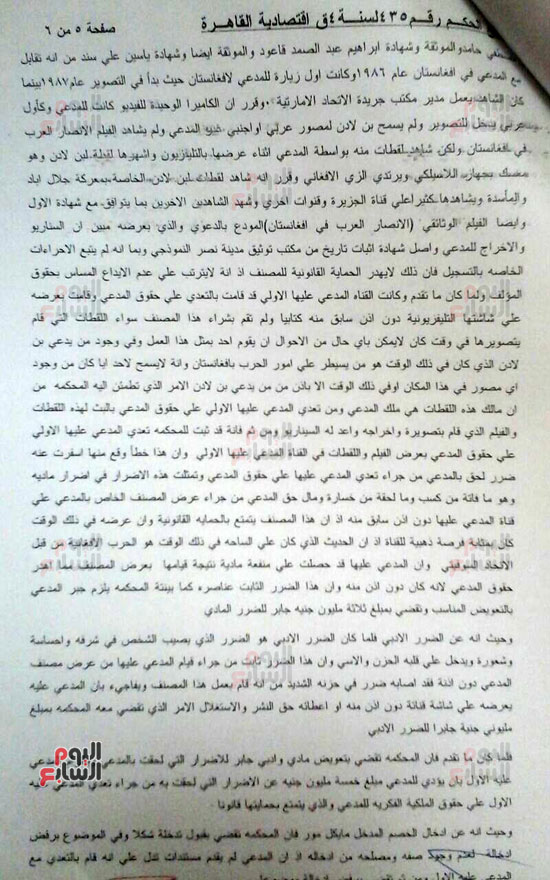 الحكم رقم ٤٣٥ لسنة ٤ق اقتصادية القاهرة صفحة ٥ من ٦
حامد والموثقة وشهادة ابراهيم عبد الصمد قاعود والموثقة ايضا وشهادة ياسين علي سند من انه تقابل
مع المدعي في افغانستان عام ١٩٨٦ وكانت اول زيارة للمدعي لافغانستان حيث بدأ في التصوير عام ١٩٨٧ بينما
كان الشاهد يعمل مدير مكتب جريدة الاتحاد الاماراتية . وقرر ان الكاميرا الوحيدة للفيديو كانت للمدعي وكأول
عربي يدخل للتصوير ولم يسمح بن لادن لمصور عربي او اجنبي غير المدعي ولم يشاهد الفيلم الانصار العرب
في افغانستان ولكن شاهد لقطات منه بواسطة المدعي اثناء عرضها بالتليفزيون واشهرها لقطة لبن لادن وهو
ممسك بجهاز اللاسيلكي ويرتدي الزي الافغاني وقرر انه شاهد لقطات لبن لادن الخاصة بمعركة جلال اباد
والمأسدة ويشاهدها كثيرا علي قناة الجزيرة وقنوات اخري وشهد الشاهدين الاخرين بما يتوافق مع شهادة الاول
وايضا الفيلم الوثائقي (الانصار العرب في افغانستان) المودع بالدعوي والذي بعرضه مبين ان السناريو
والاخراج للمدعي واصل شهادة اثبات تاريخ من مكتب توثيق مدينة نصر النموذجي وبما انه لم يتبع الاجراءات
الخاصه بالتسجيل فان ذلك لايهدر الحماية القانونية للمصنف اذ انة لايترتب علي عدم الايداع المساس بحقوق
المؤلف ولما كان ما تقدم وكانت القناه المدعي عليها الاولي قد قامت بالتعدي علي حقوق المدعي وقامت بعرضه
علي شاشتها التليفزيونية دون اذن سابق منه كتابيا ولم تقم بشراء هذا المصنف سواء اللقطات التي قام
بتصويرها في وقت كان لايمكن باي حال من الاحوال ان يقوم احد بمثل هذا العمل وفي وجود من يدعي بن
لادن الذي كان في ذلك الوقت هو من يسيطر علي امور الحرب بافغانستان وانة لايسمح لاحد ايا كان من وجود
اي مصور في هذا المكان اوفي ذلك الوقت الا باذن من من يدعي بن لادن الامر الذي تطمئن اليه المحكمه من
ان مالك هذه اللقطات هي ملك المدعي ومن تعدي المدعي عليها الاولي علي حقوق المدعي بالبث لهذه اللقطات
والفيلم الذي قام بتصويرة واخراجه واعد له السيناريو ومن ثم فانة قد ثبت للمحكمه تعدي المدعي عليها الاولي
علي حقوق المدعي بعرض الفيلم واللقطات في القناة المدعي عليها الاولي وان هذا خطأ وقع منها اسفرت عنه
ضرر لحق بالمدعي من جراء تعدي المدعي عليها علي حقوق المدعي وتمثلت هذه الاضرار في اضرار ماديه
وهو ما فاتة من كسب وما لحقة من خسارة ومال حق المدعي من جراء عرض المصنف الخاص بالمدعي علي
قناة المدعي عليها دون اذن سابق منه اذ ان هذا المصنف يتمتع بالحمايه القانونية وان عرضه في ذلك الوقت
كان بمثابة فرصة ذهبية للقناة اذ ان الحديث الذي كان علي الساحه في ذلك الوقت هو الحرب الافغانية من قبل
الاتحاد السوفيتي وان المدعي عليها قد حصلت علي منفعة مادية نتيجة قيامها بعرض المصنف بما اهدر
حقوق المدعي لانه كان دون اذن منه وان هذا الضرر الثابت عناصره كما بينتة المحكمه يلزم جبر المدعي
بالتعويض المناسب وتقضي بمبلغ ثلاثة مليون جنيه جابر للضرر المادي
وحيث انه عن الضرر الادبي فلما كان الضرر الادبي هو الضرر الذي يصيب الشخص في شرفه واحساسة
وشعورة ويدخل علي قلبه الحزن والاسي وان هذا الضرر ثابت من جراء قيام المدعي عليها من عرض مصنف
المدعي دون اذنة فقد اصابه ضرر في حزنه الشديد من انه قام بعمل هذا المصنف ويفاجيء بان المدعي عليه
يعرضه علي شاشة قناتة دون اذن منه او اعطائه حق النشر والاستغلال الامر الذي تقضي معه المحكمه بمبلغ
مليوني جنية جابرا للضرر الادبي
فلما كان ما تقدم فان المحكمه تقضي بتعويض مادي وادبي جابر للاضرار التي لحقت بالمدعي المدعي
عليه الاول بان يؤدي للمدعي مبلغ خمسة مليون جنيه عن الاضرار التي لحقت به من جراء تعدي المدعي عليه
الاول علي حقوق الملكية الفكريه للمدعي والذي يتمتع بحمايتها قانونا .
وحيث انه عن ادخال الخصم المدخل مايكل مور فان المحكمه تقضي بقبول تدخلة شكلا وفي الموضوع برفض
ادخالة لعدم وجود صفه ومصلحه من ادخاله اذ ان المدعي لم يقدم مستندات تدل علي انه قام بالتعدي مع
المدعي عليه الاول ومن ثم تقضي برفض ادخالة موضوعا
اليوم السابع
اليوم السابع